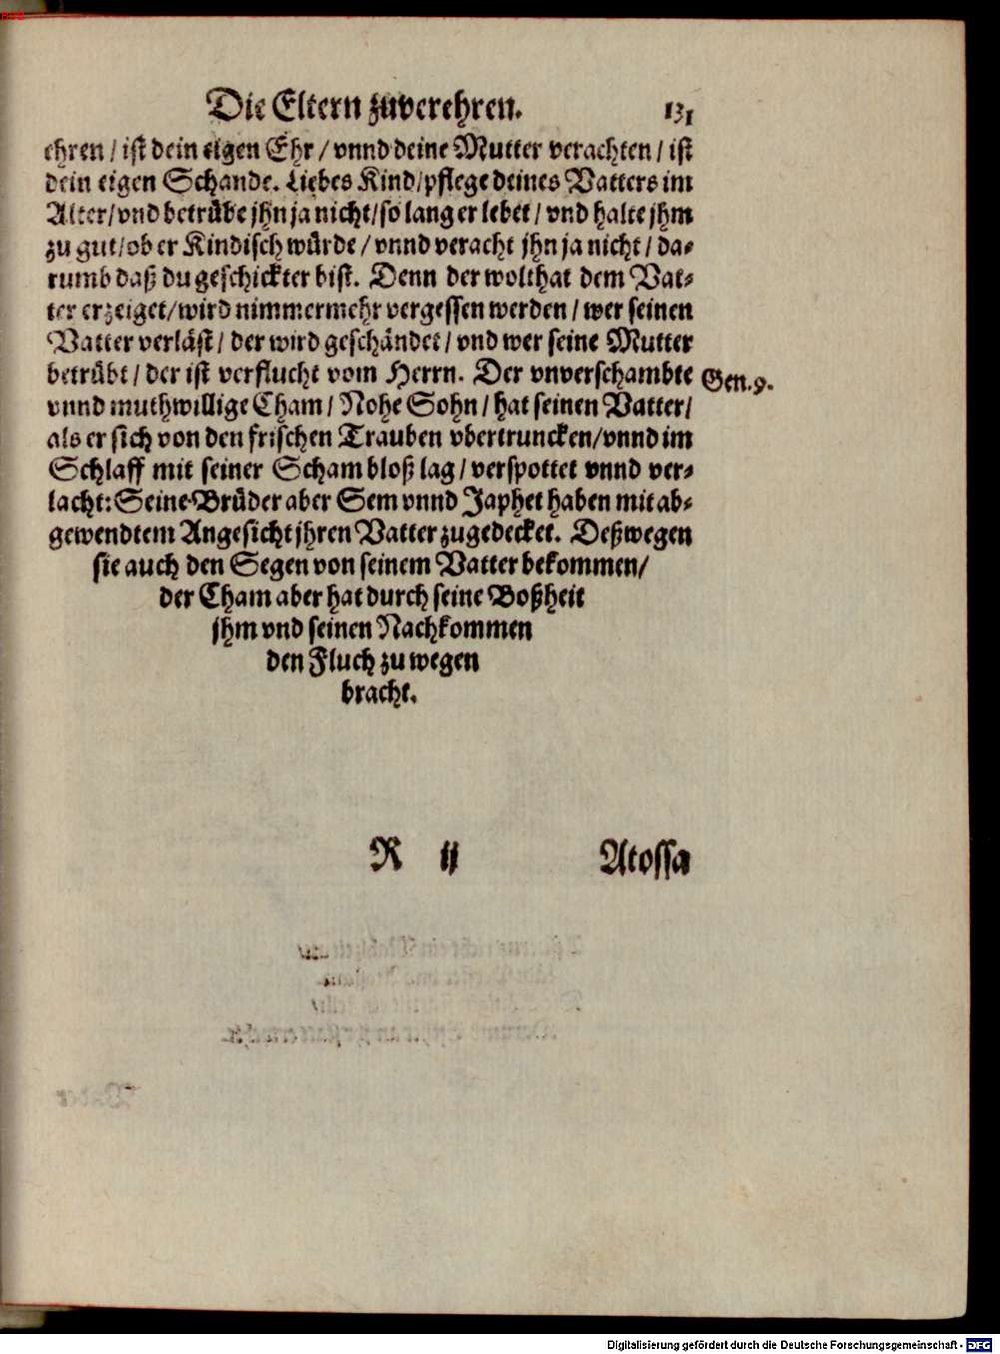 Die Eltern zuverehren. 131
ehren / ist dein eigen Ehr / vnnd deine Mutter verachten / ist
dein eigen Schande. Liebes Kind / pflege deines Vatters im
Alter / vnd betrübe jhn ja nicht / so lang er lebet / vnd halte jhm
zu gut / ob er Kindisch würde / vnnd veracht jhn ja nicht / da-
rumb daß du geschickter bist. Denn der wolthat dem Vat-
ter erzeiget / wird nimmermehr vergessen werden / wer seinen
Vatter verläst / der wird geschändet / vnd wer seine Mutter
betrübt / der ist verflucht vom Herrn. Der vnverschambte Gen. 9.
vnnd muthwillige Cham / Nohe Sohn / hat seinen Vatter /
als er sich von den frischen Trauben vbertruncken / vnnd im
Schlaff mit seiner Scham bloß lag / verspottet vnnd ver-
lacht: Seine Brüder aber Sem vnnd Japhet haben mit ab-
gewendtem Angesicht jhren Vatter zugedecket. Deßwegen
sie auch den Segen von seinem Vatter bekommen /
der Cham aber hat durch seine Boßheit
jhm vnd seinen Nachkommen
den Fluch zu wegen
bracht.
R ij Atossa
Digitalisierung gefördert durch die Deutsche Forschungsgemeinschaft - DFG